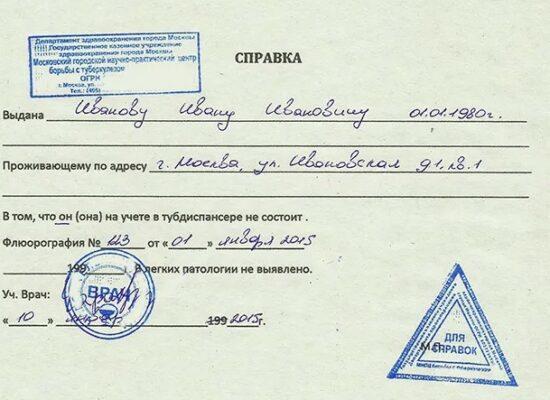 Департамент здравоохранения города Москвы
Государственное казенное учреждение
здравоохранения города Москвы
Московский городской научно-практический центр
борьбы с туберкулезом
ОГРН
г. Москва, ул.
Тел.: (495)
СПРАВКА
Выдана Иванову Ивану Ивановичу 01.01.1980г.
Проживающему по адресу г. Москва, ул. Ивановская д1, кв. 1
В том, что он (она) на учете в тубдиспансере не состоит .
Флюорография № 123 от «01» января 2015
199 г. В легких патологии не выявлено.
Уч. Врач:
ВРАЧ
«10» 199 2015г.
М.П.
ДЛЯ
СПРАВОК